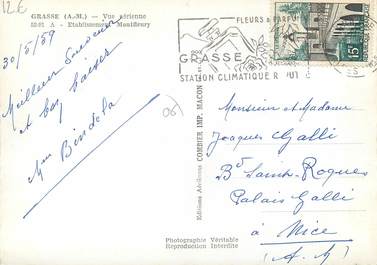 12€
GRASSE (A.-M.) — Vue aérienne
Etablissements Montfleury
30/5/59
Meilleur Souvenir
et bons baisers
Mme Bindela
(06)
FLEURS & PARFU
GRASSE
STATION CLIMATIQUE R
15F
Editions Aériennes COMBIER IMP. MACON
Monsieur et Madame
Jacques Galli
Bd Saint-Roques
Palais Galli
à Nice
(A. M)
Photographie Véritable
Reproduction Interdite